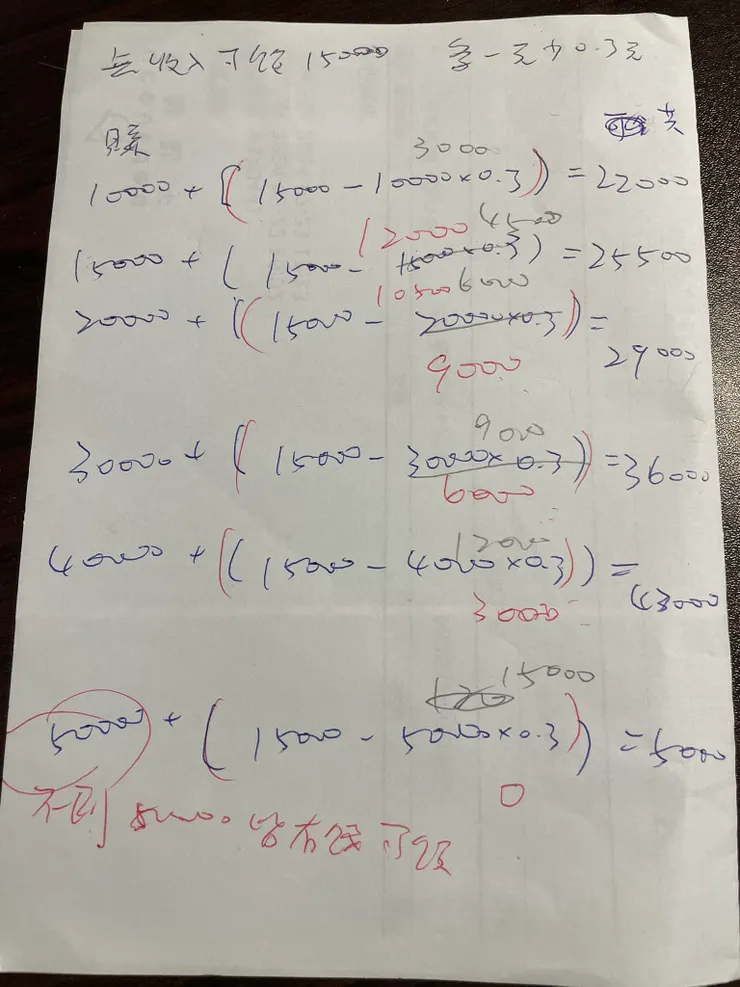 無收入可領15000 多一元少0.3元
賺 共
3000
10000 + [(15000 - 10000×0.3)] = 22000
12000 4500
15000 + (15000 - 15000×0.3) = 25500
10500 6000
20000 + [(15000 - 20000×0.3)] =
9000 29000
9000
30000 + ((15000 - 30000×0.3)) = 36000
6000
12000
40000 + ((15000 - 40000×0.3)) =
3000 43000
15000
50000 + (15000 - 50000×0.3) = 50000
0
不到50000皆有錢可領